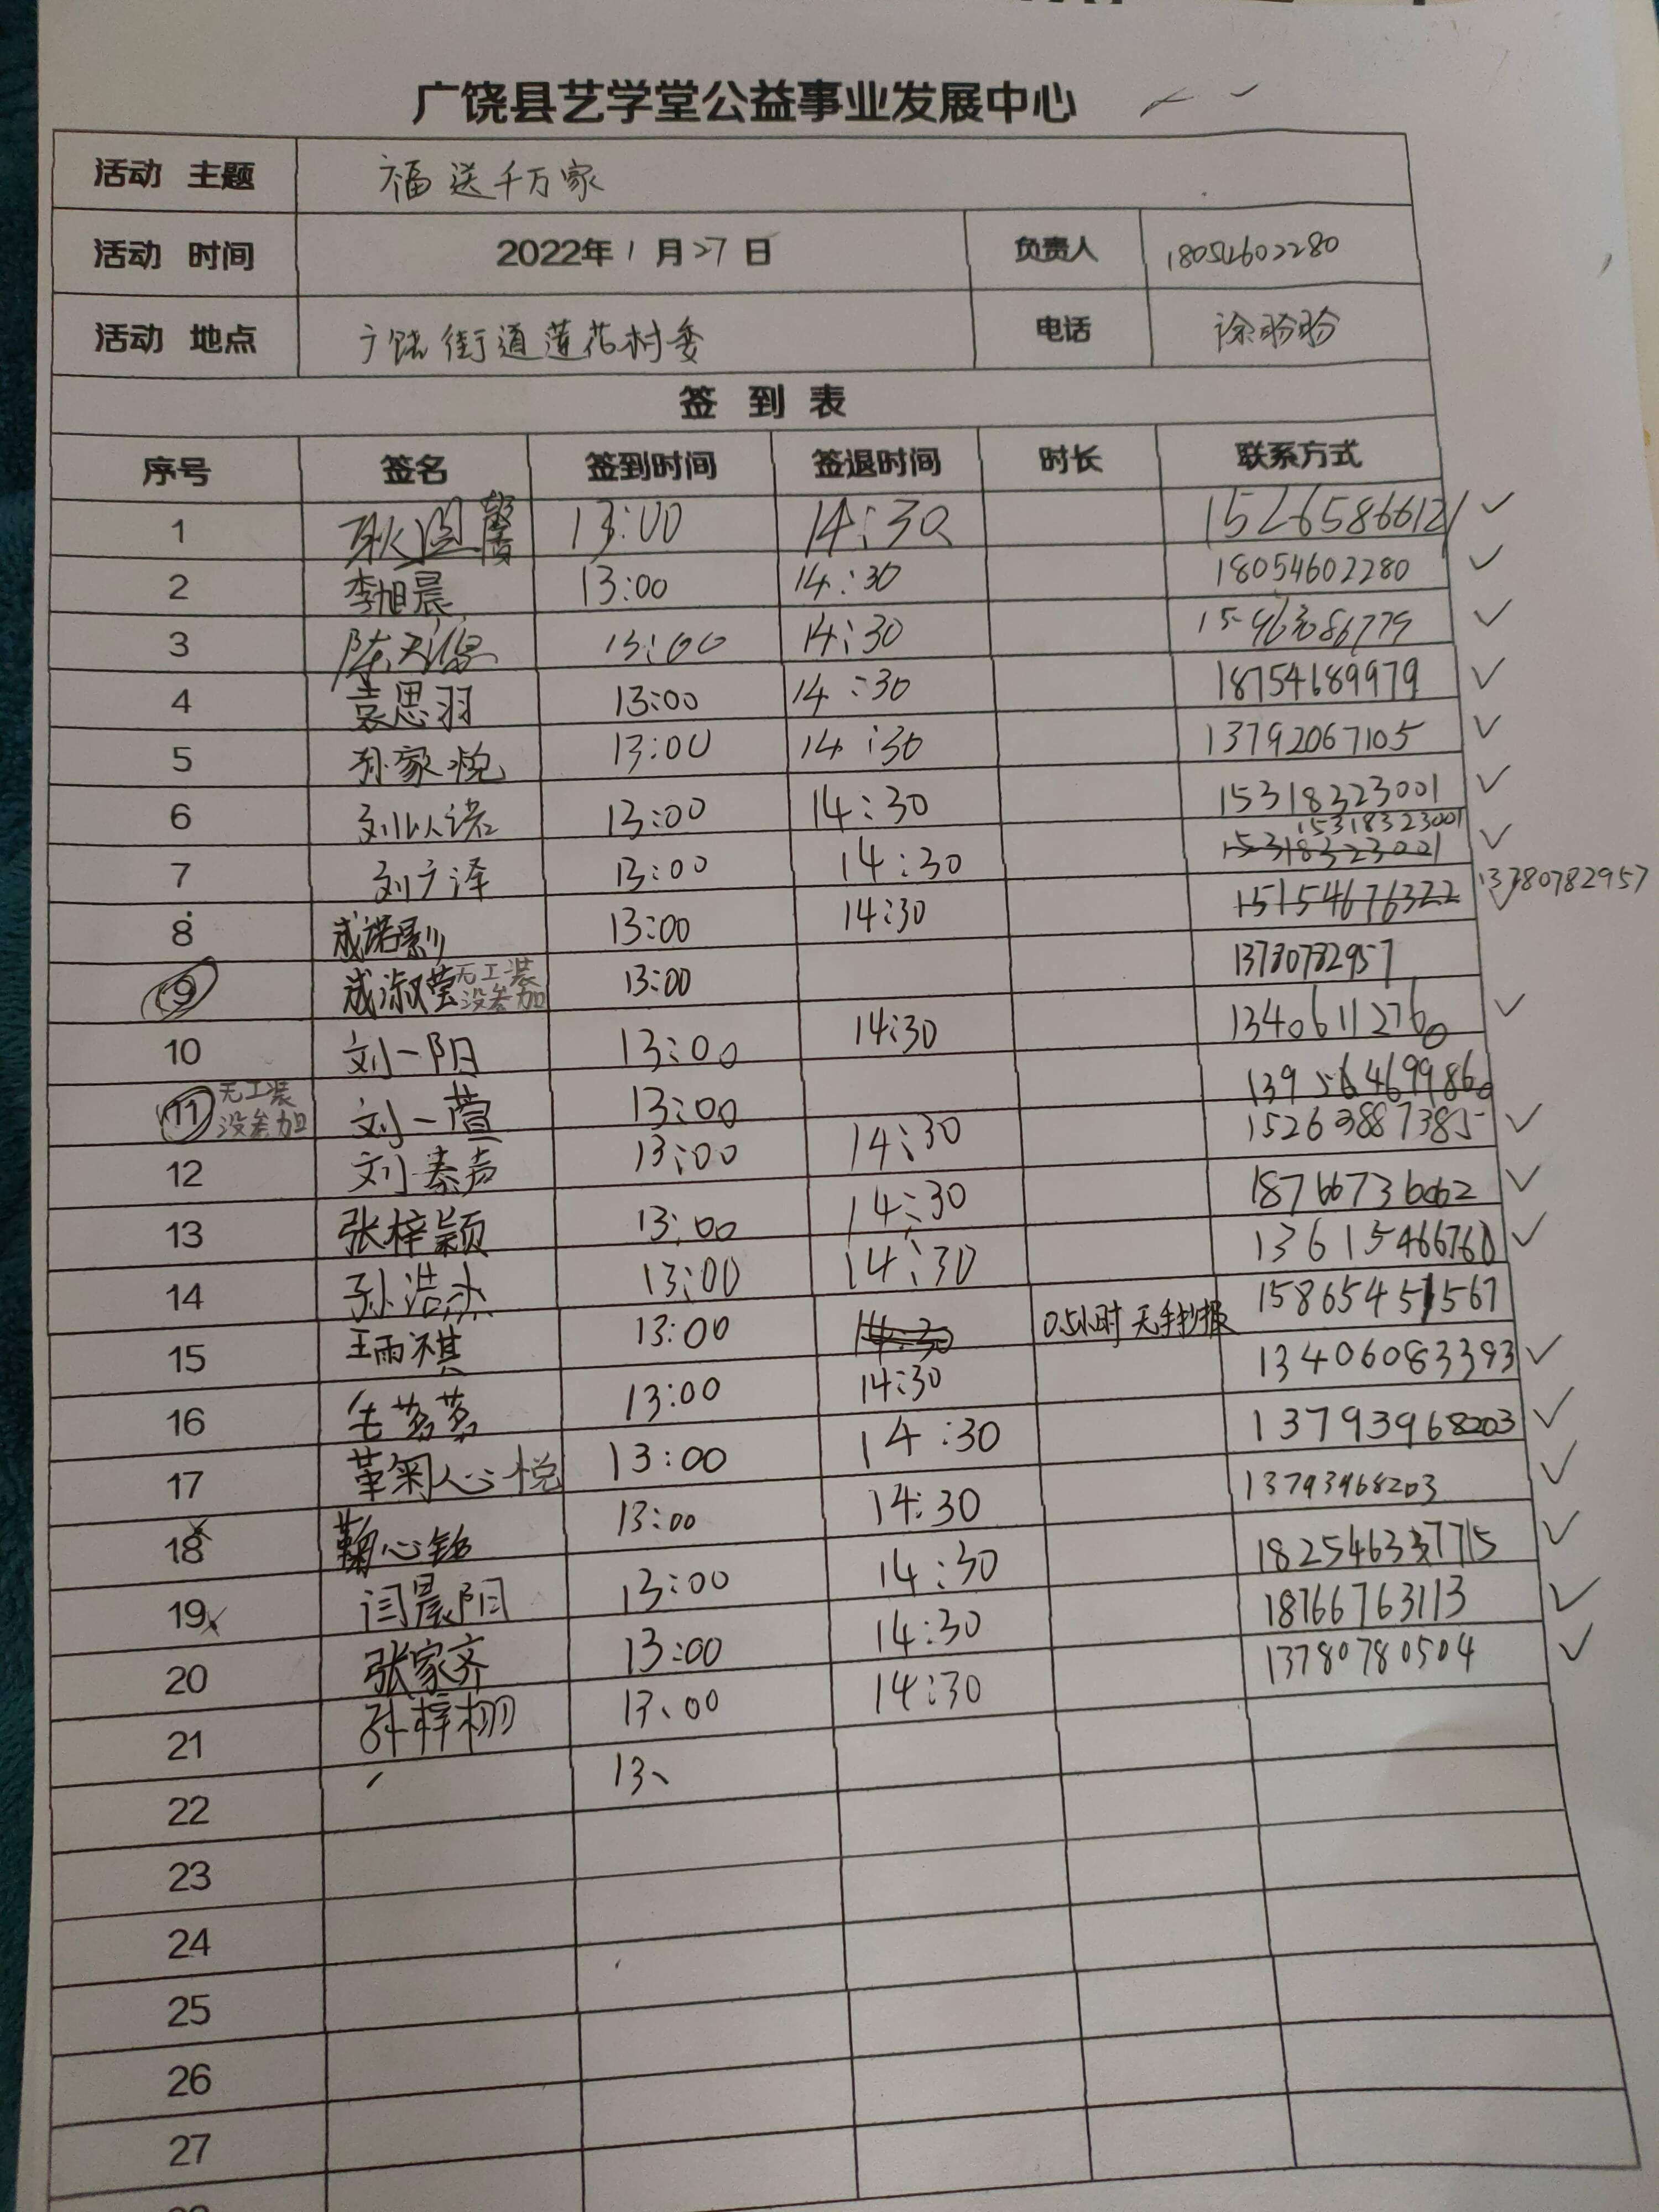 广饶县艺学堂公益事业发展中心
活动 主题 福送千万家
活动 时间 2022年1月27日 负责人 18054602280
活动 地点 广饶街道莲花村委 电话 徐盼盼
签 到 表
序号 签名 签到时间 签退时间 时长 联系方式
1 13:00 14:30 15265866121 ✓
2 李旭晨 13:00 14:30 18054602280 ✓
3 13:00 14:30 15963086779 ✓
4 袁思羽 13:00 14:30 18754689979 ✓
5 孙家悦 13:00 14:30 13792067105 ✓
6 刘以诺 13:00 14:30 15318323001 ✓
15318323001
7 刘广泽 13:00 14:30 15318323001 ✓
8 13:00 14:30 15154676322 ✓ 13780782957
9 成淑莹 无工装 没参加 13:00 13780782957
10 刘一阳 13:00 14:30 13406112760 ✓
11 无工装 没参加 刘一萱 13:00
12 刘秦声 13:00 14:30 15263887385 ✓
13 张梓颖 13:00 14:30 18766736062 ✓
14 孙浩杰 13:00 14:30 13615466760 ✓
15 王雨祺 13:00 14:30 0.5小时 无手抄报 15865451567
16 生茗茗 13:00 14:30 13406083393 ✓
17 鞠心悦 13:00 14:30 13793968203 ✓
18 鞠心铭 13:00 14:30 13793968203 ✓
19 闫晨阳 13:00 14:30 ✓
20 张家齐 13:00 14:30 18766763113 ✓
21 孙梓栩 13:00 14:30 13780780504 ✓
22 13:
23
24
25
26
27